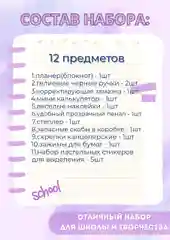 СОСТАВ НАБОРА:
12 предметов
1.планер(блокнот) - 1шт
2.гелиевые черные ручки - 2шт
3.корректирующая замазка - 1шт
4.мини калькулятор - 1шт
5.веселые наклейки - 1шт
6.удобный прозрачный пенал - 1шт
7.степлер - 1шт
8.запасные скобы в коробке - 1шт
9.скрепки канцелярские - 1шт
10.зажимы для бумаг - 1шт
11.набор пастельных стикеров
для выделения - 5шт
school
ОТЛИЧНЫЙ НАБОР
ДЛЯ ШКОЛЫ И ТВОРЧЕСТВА